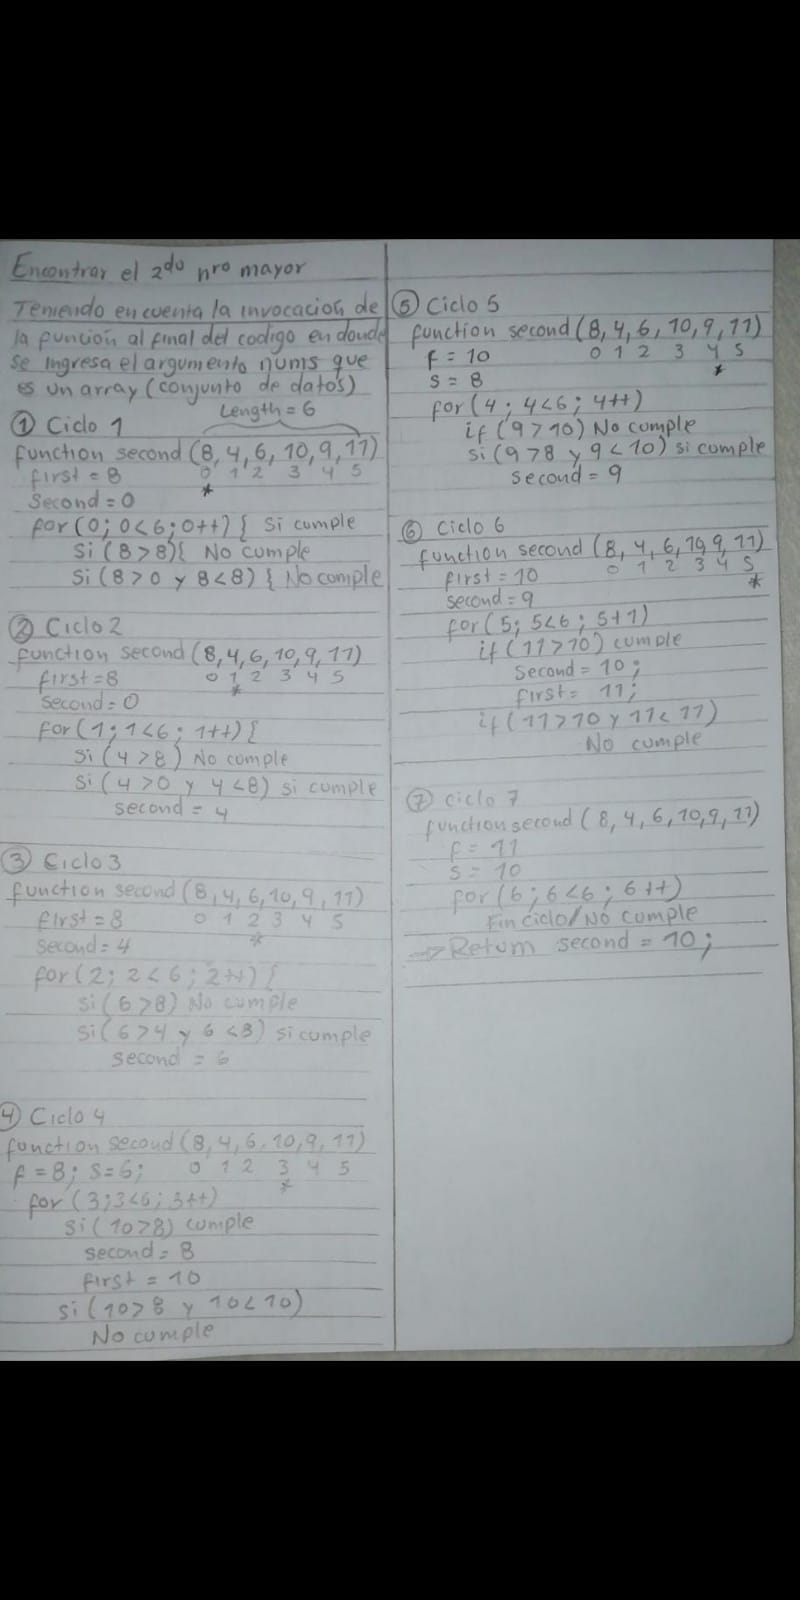 Encontrar el 2do nro mayor
Teniendo en cuenta la invocacion de
la función al final del codigo en donde
se ingresa el argumento nums que
es un array (conjunto de datos)
Length = 6
① Ciclo 1
function second (8, 4, 6, 10, 9, 11)
first = 8 0 1 2 3 4 5
*
Second = 0
for (0; 0<6; 0++) { si cumple
Si (8 > 8) { No cumple
Si (8 > 0 y 8 < 8) { No cumple
② Ciclo 2
function second (8, 4, 6, 10, 9, 11)
first = 8 0 1 2 3 4 5
*
second = 0
for (1; 1<6; 1++) {
Si (4 > 8) No cumple
Si (4 > 0 y 4 < 8) si cumple
second = 4
③ Ciclo 3
function second (8, 4, 6, 10, 9, 11)
first = 8 0 1 2 3 4 5
*
second = 4
for (2; 2 < 6; 2++) {
si (6 > 8) No cumple
si (6 > 4 y 6 < 8) si cumple
second = 6
④ Ciclo 4
function second (8, 4, 6, 10, 9, 11)
f = 8; s = 6; 0 1 2 3 4 5
*
for (3; 3<6; 3++)
si (10 > 8) cumple
second = 8
first = 10
si (10 > 8 y 10 < 10)
No cumple
⑤ Ciclo 5
function second (8, 4, 6, 10, 9, 11)
f = 10 0 1 2 3 4 5
*
s = 8
for (4; 4<6; 4++)
if (9 > 10) No cumple
si (9 > 8 y 9 < 10) si cumple
second = 9
⑥ Ciclo 6
function second (8, 4, 6, 10, 9, 11)
first = 10 0 1 2 3 4 5
*
second = 9
for (5; 5<6; 5+1)
if (11 > 10) cumple
second = 10;
first = 11;
if (11 > 10 y 11 < 11)
No cumple
⑦ ciclo 7
function second (8, 4, 6, 10, 9, 11)
f = 11
s = 10
for (6; 6<6; 6++)
Fin ciclo/No cumple
→ Return second = 10;